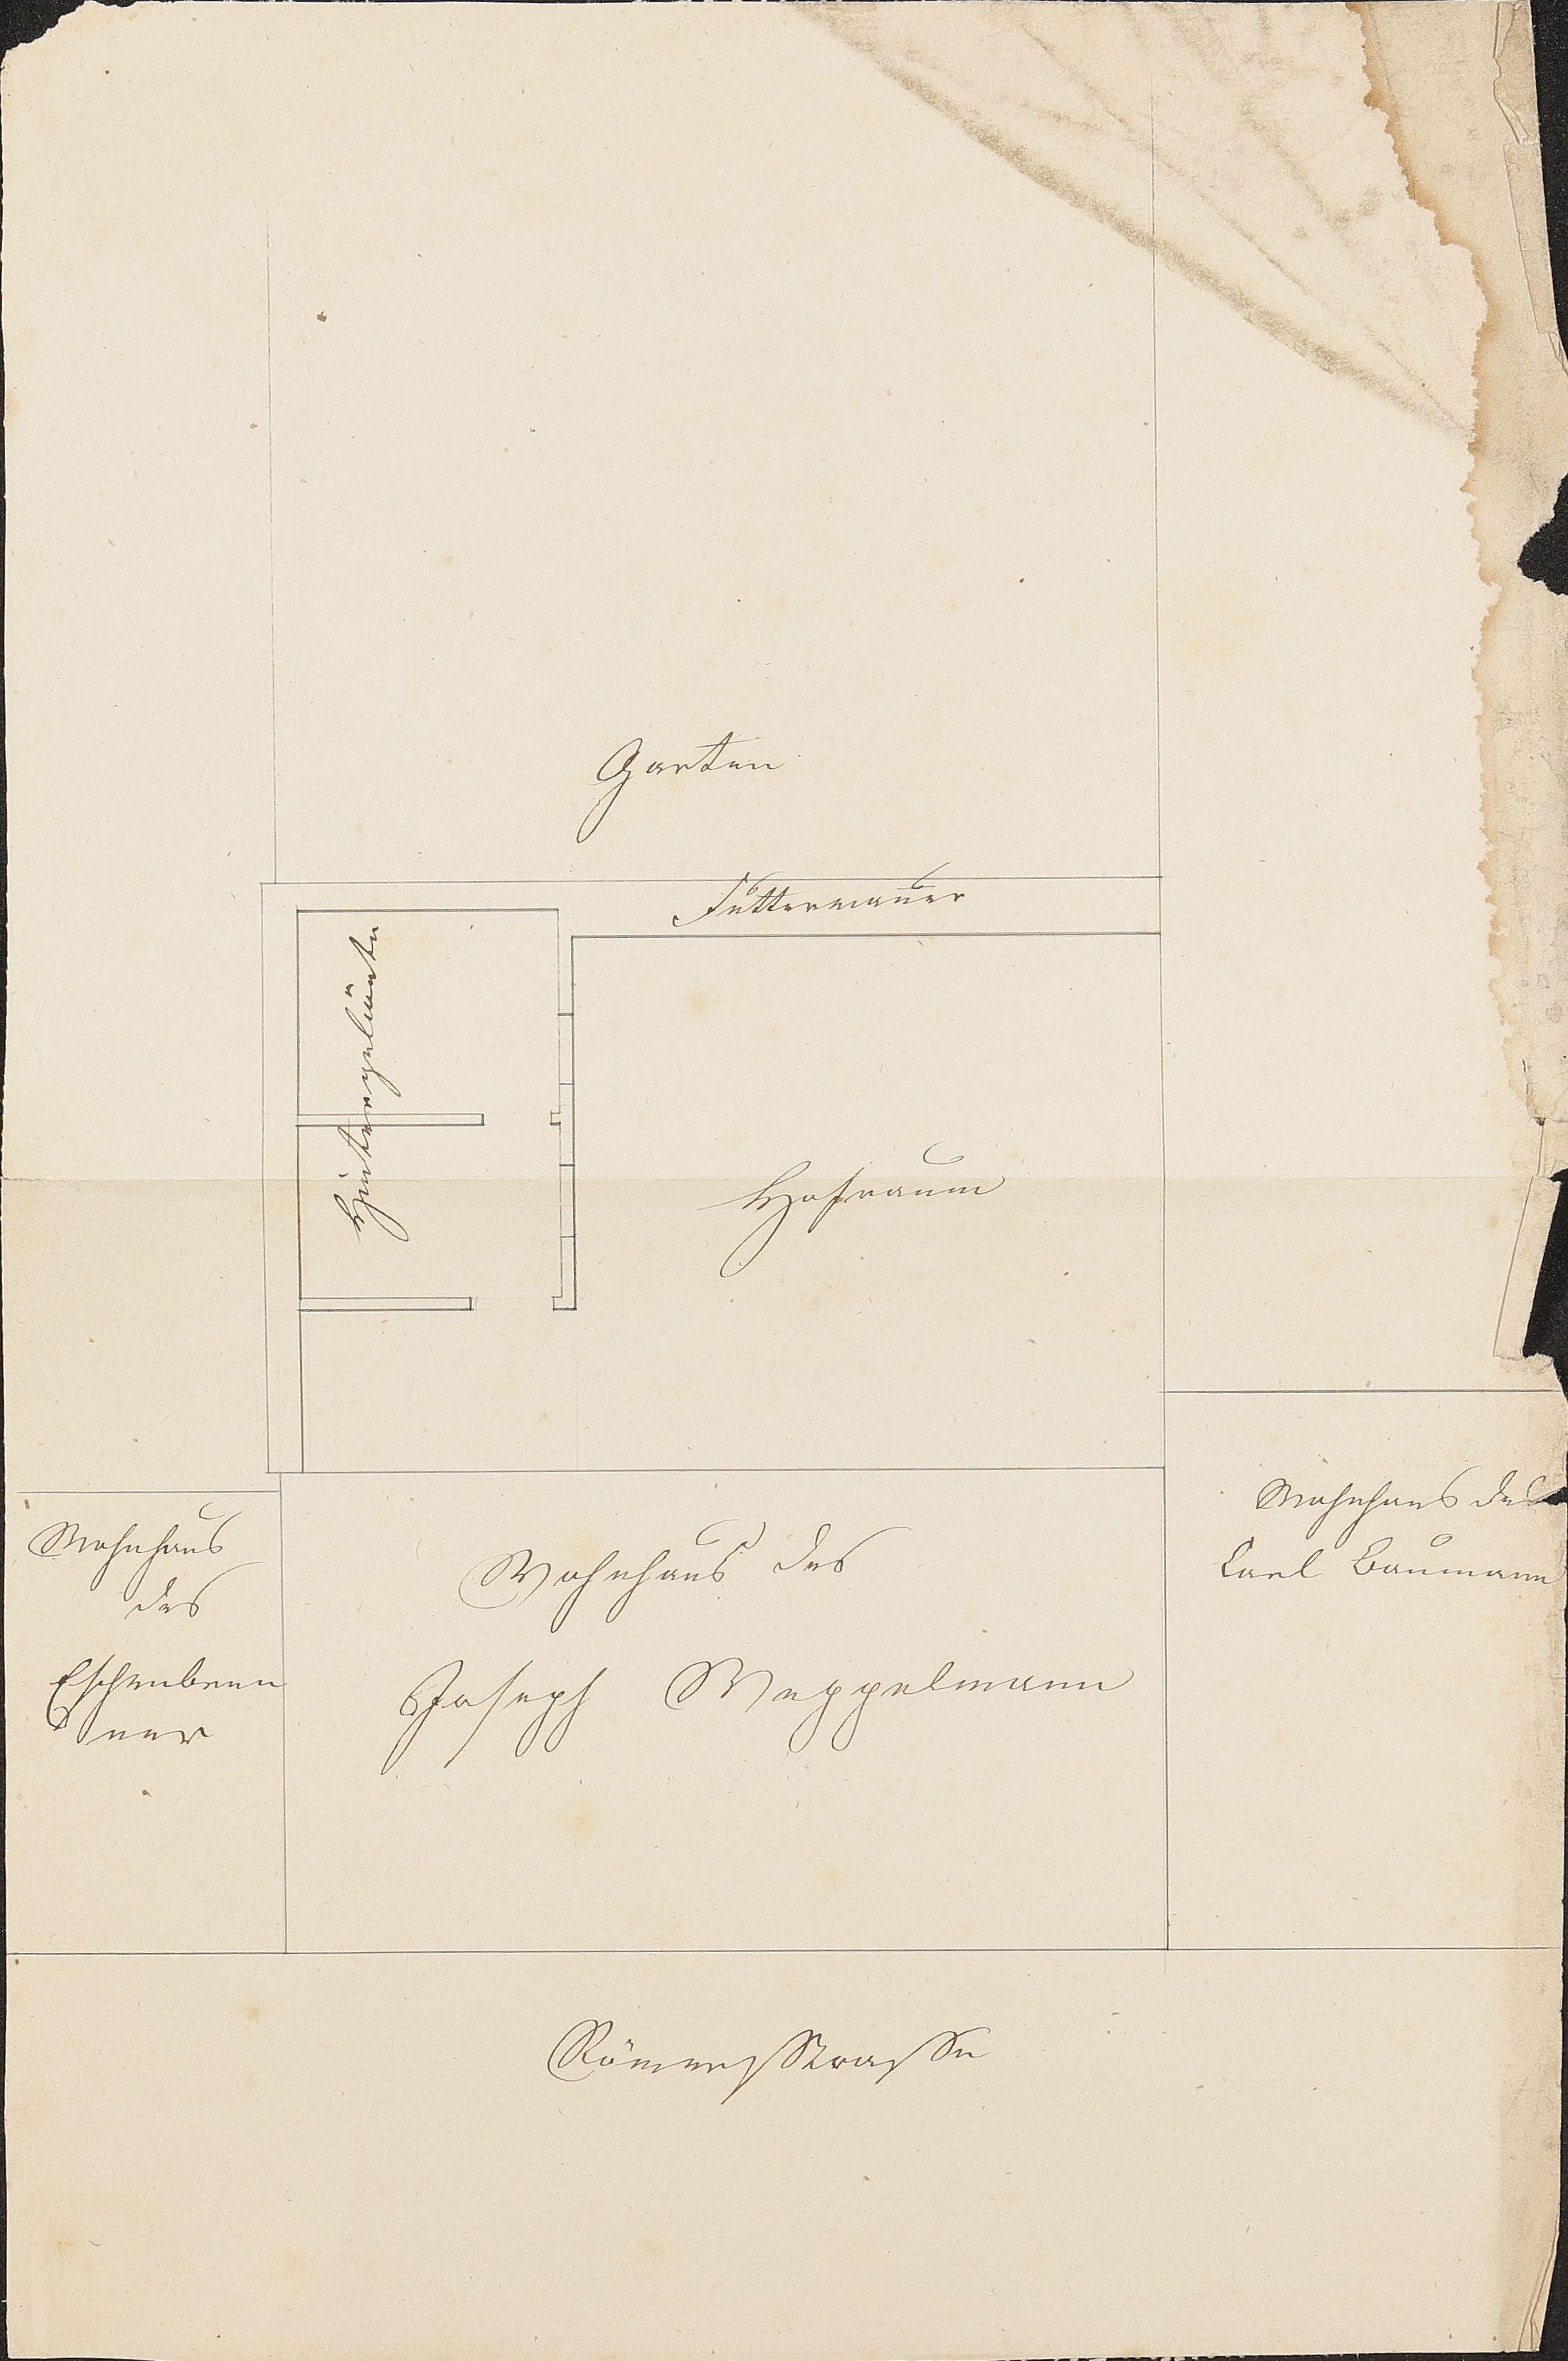 Garten
Futtermauer
Hintergebäude
Hofraum
Wohnhaus
des
Eschenbren
ner
Wohnhaus des
Joseph Meppelmann
Wohnhaus des
Carl Baumann
Römerstrasse